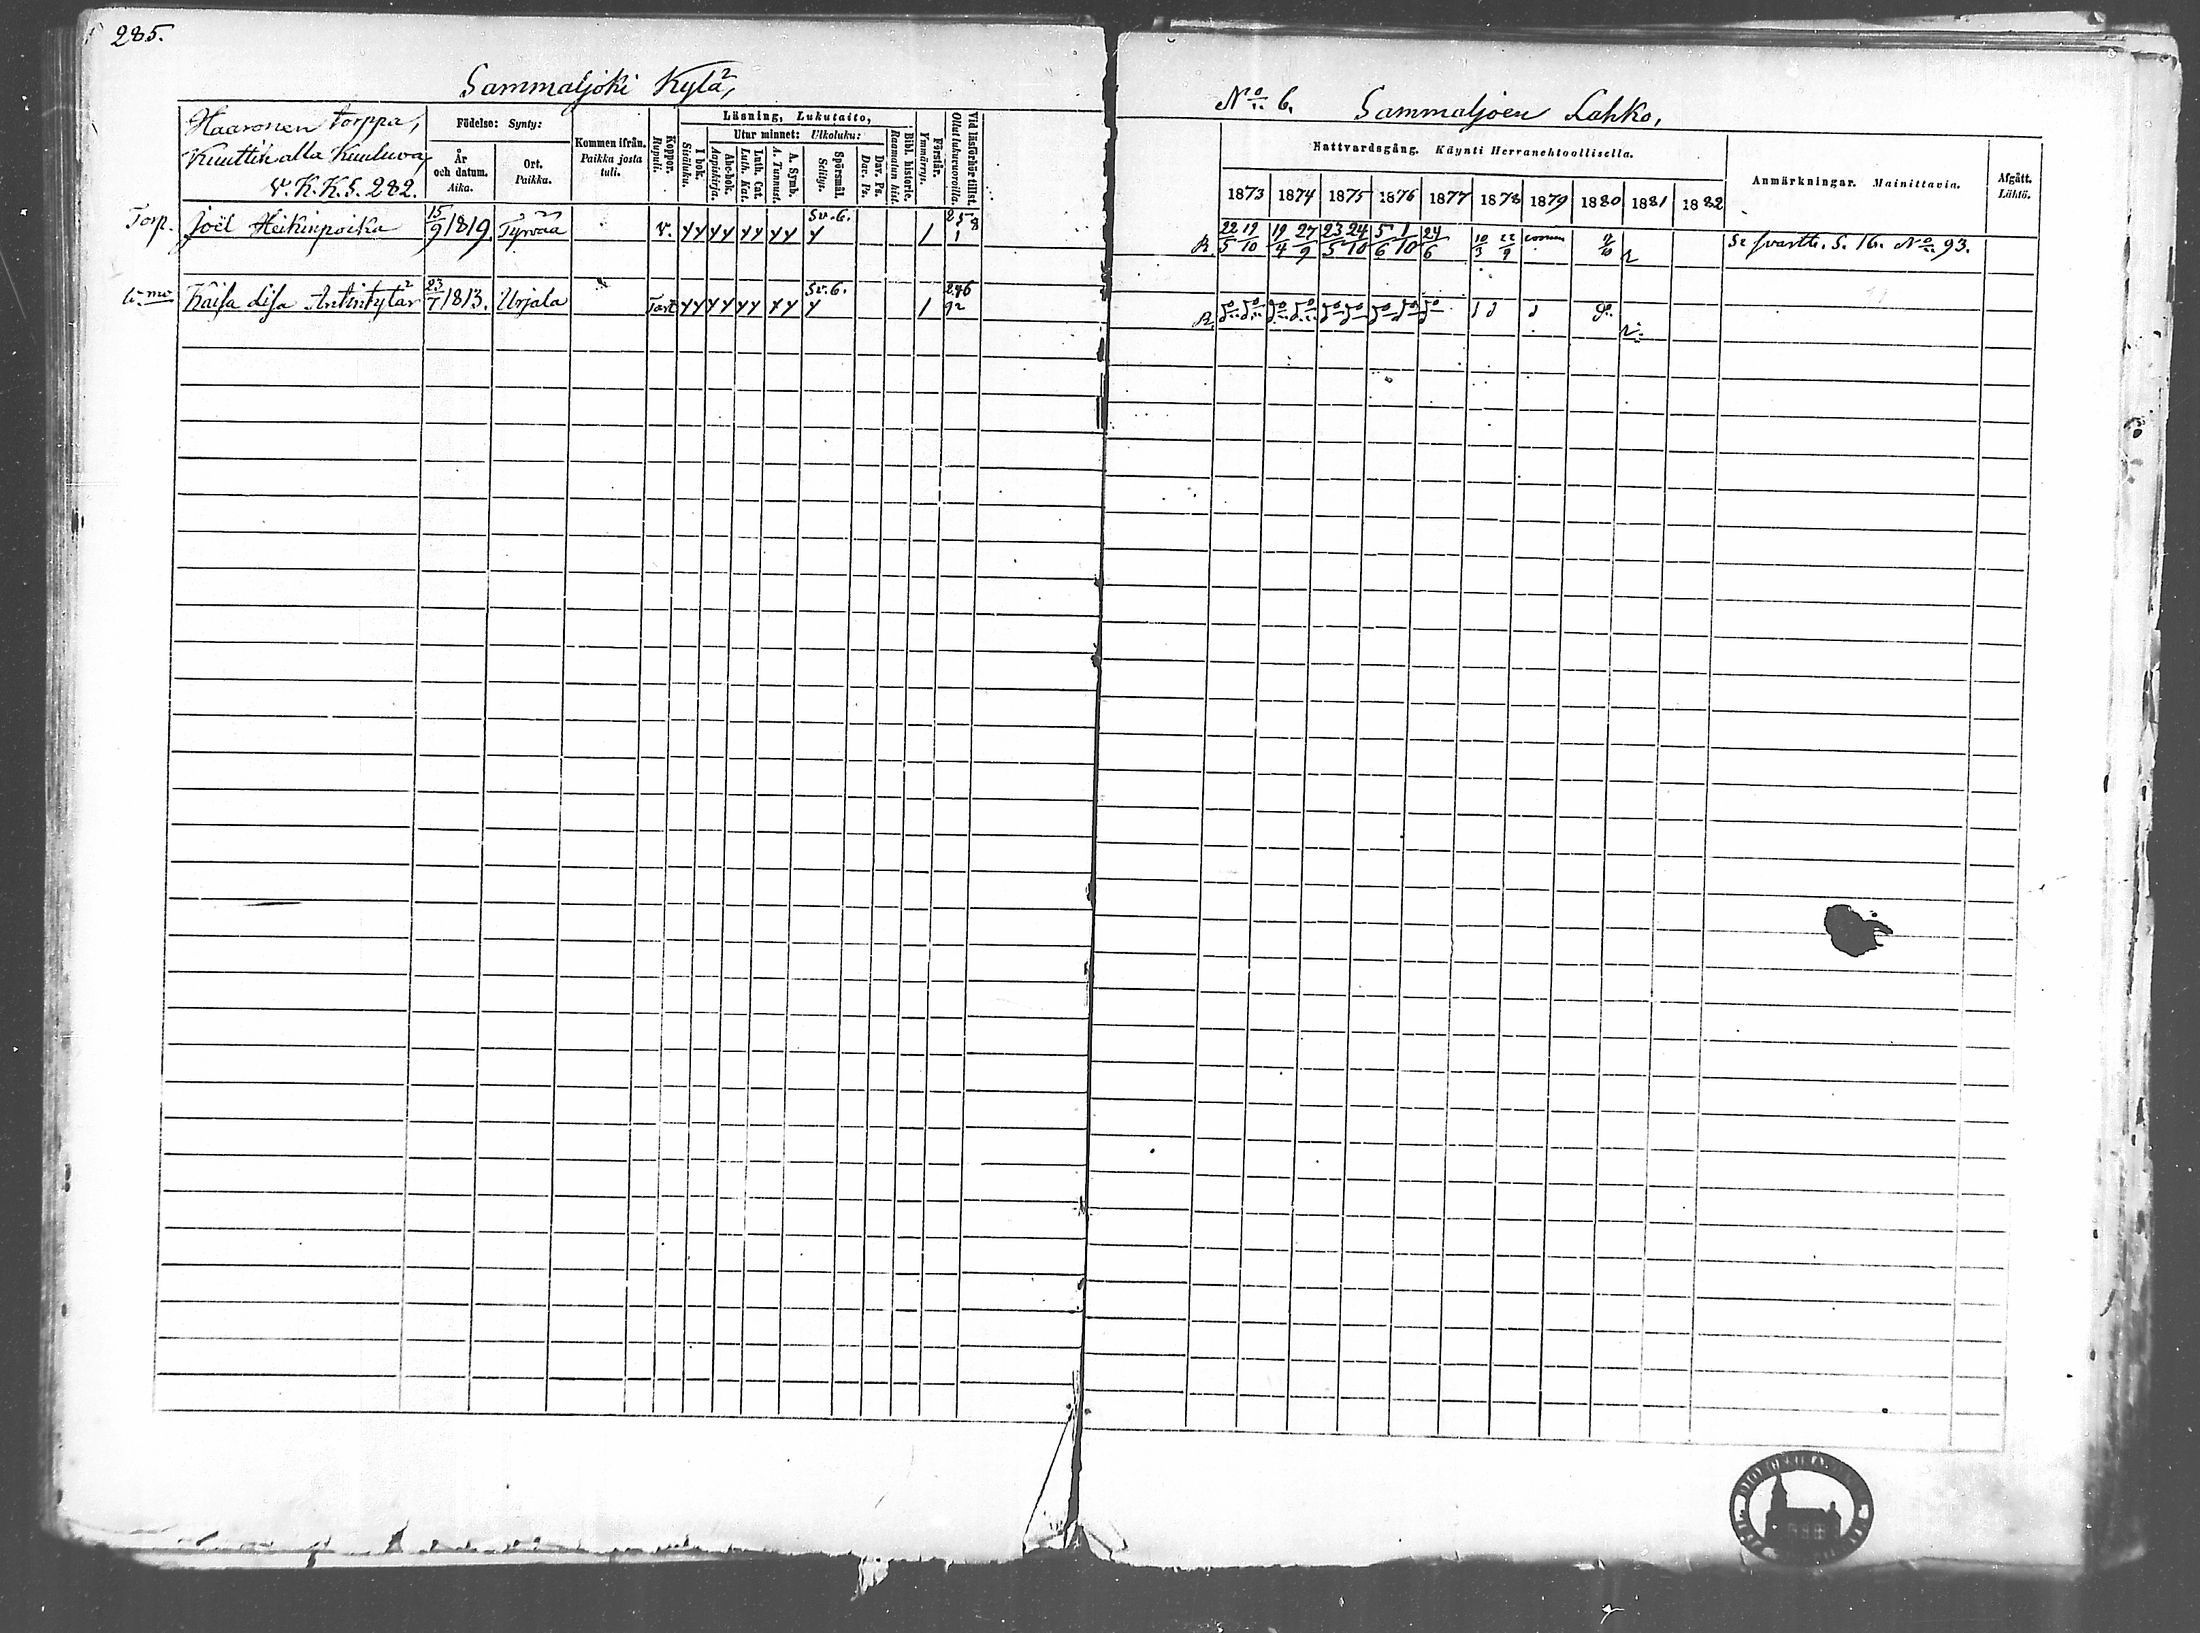 285.
Sammaljoki Kylä,
Haaronen torppa,
Kuuttilan alla Kuuluva,
v. K. K. S. 282.
Födelse: Synty:
År och datum. Aika.
Ort. Paikka.
Kommen ifrån. Paikka josta tuli.
Koppor. Rupuli.
Läsning, Lukutaito,
I bok. Sisäluku.
Utur minnet: Ulkoluku:
Abc-bok. Aapiskirja.
Luth. Cat. Luth. Kat.
A. Symb. A. Tunnust.
Spörsmål. Selitys.
Dav. Ps. Dav. Ps.
Bibl. historie. Raamatun hist.
Förstår. Ymmärrys.
Vid läsförhör tillst. Ollut lukuvuoroilla.
Torp. Joël Heikinpoika 15/9 1819. Tyrvää v. y y y y y y y y Sv. 6. y 1
Kaisa Lisa Antintytär 23/1 1813. Urjala y y y y y y y y Sv. 6. y 1
No 6. Sammaljoen Lahko,
Nattvardsgång. Käynti Herranehtoollisella.
1873 1874 1875 1876 1877 1878 1879 1880 1881 1882
Anmärkningar. Mainittavia.
Afgått. Lähtö.
R. 22/5 12/10 19/4 27/9 23/5 24/10 5/6 1/10 24/6 10/3 22/9 S. 16. No 93.
R. do do do do do do do do do